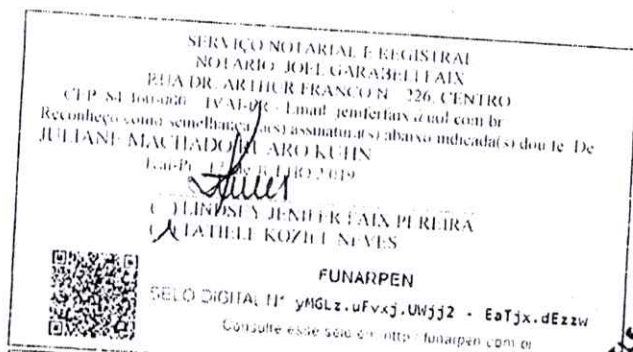 SERVIÇO NOTARIAL E REGISTRAL
NOTÁRIO: JOEL GARABELI FAIX
RUA DR. ARTHUR FRANCO N 226, CENTRO
CEP 84.460-000 IVAÍ-PR - Email jeniferfaix@uol.com.br
Reconheço como semelhança a(s) assinatura(s) abaixo indicada(s) dou fé. De
JULIANE MACHADO KUHN
JULHO 2019
( ) LINDSEY JENIFER FAIX PEREIRA
( ) TATIELE KOZIEL NEVES
FUNARPEN
SELO DIGITAL Nº yMGLz.uFvxj.UWjj2 - EaTjx.dEzzw
Consulte esse selo em http://funarpen.com.br